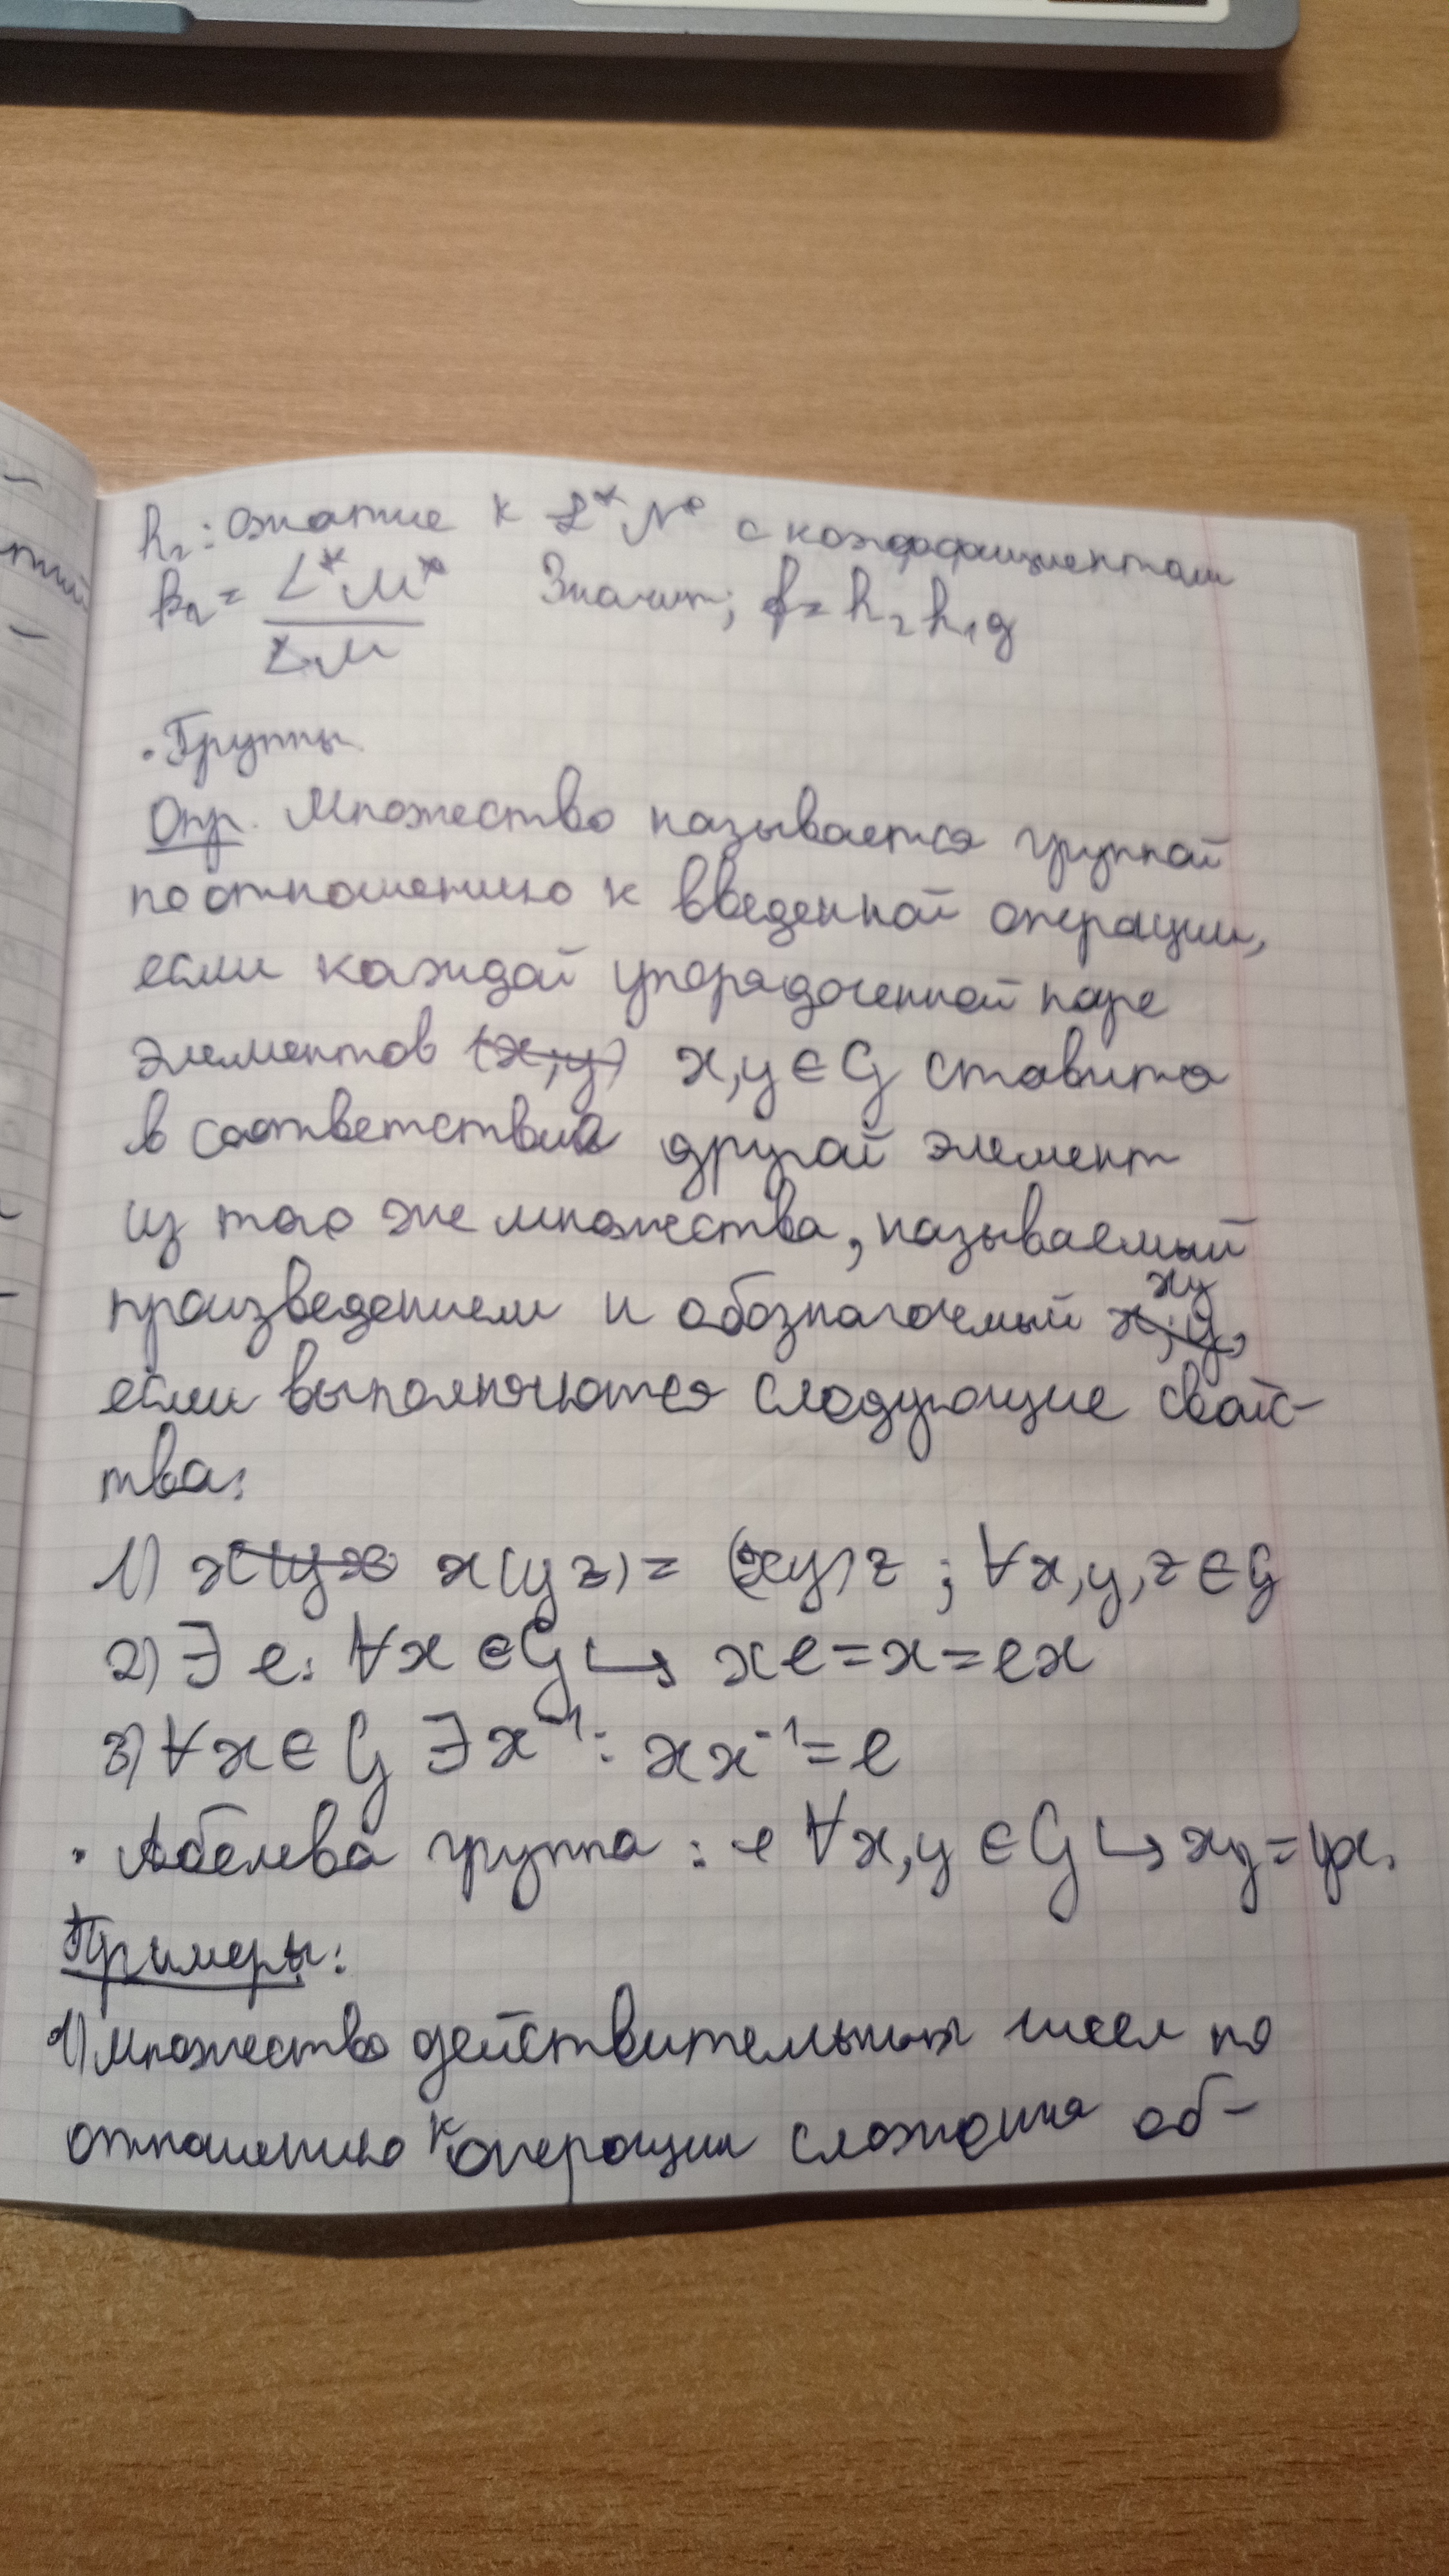 h₂: сжатие к L*N* с коэффициентом
k₂ = L*M* / LM Значит, f = h₂h₁g
• Группы
Опр. Множество называется группой
по отношению к введенной операции,
если каждой упорядоченной паре
элементов (x,y) x,y ∈ G ставится
в соответствии другой элемент
из того же множества, называемый
произведением и обозначаемый x,y, xy
если выполняются следующие свойс-
тва:
1) x(yz) = (xy)z ; ∀x,y,z ∈ G
2) ∃ e: ∀x ∈ G ↪ xe = x = ex
3) ∀x ∈ G ∃ x⁻¹: xx⁻¹ = e
• Абелева группа : ∀x,y ∈ G ↪ xy = yx.
Примеры:
1) Множество действительных чисел по
отношению к операции сложения об-